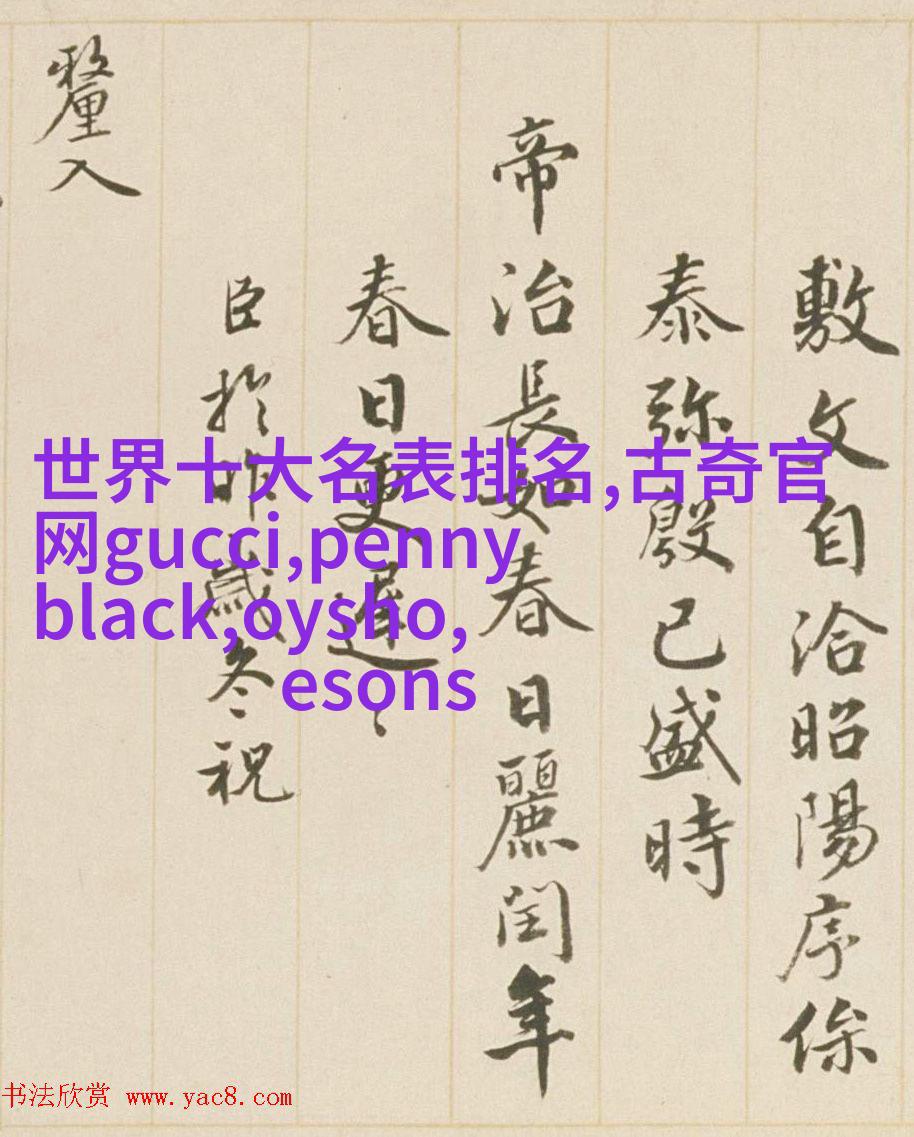 敷文自洽昭陽序
泰弥殷已盛時
帝治長如春日麗閏年
春日更遲〻
臣於昨歲冬祝
釐入
世界十大名表排名,古奇官
网gucci,penny
black,oysho,
esons
书法欣赏 www.yac8.com